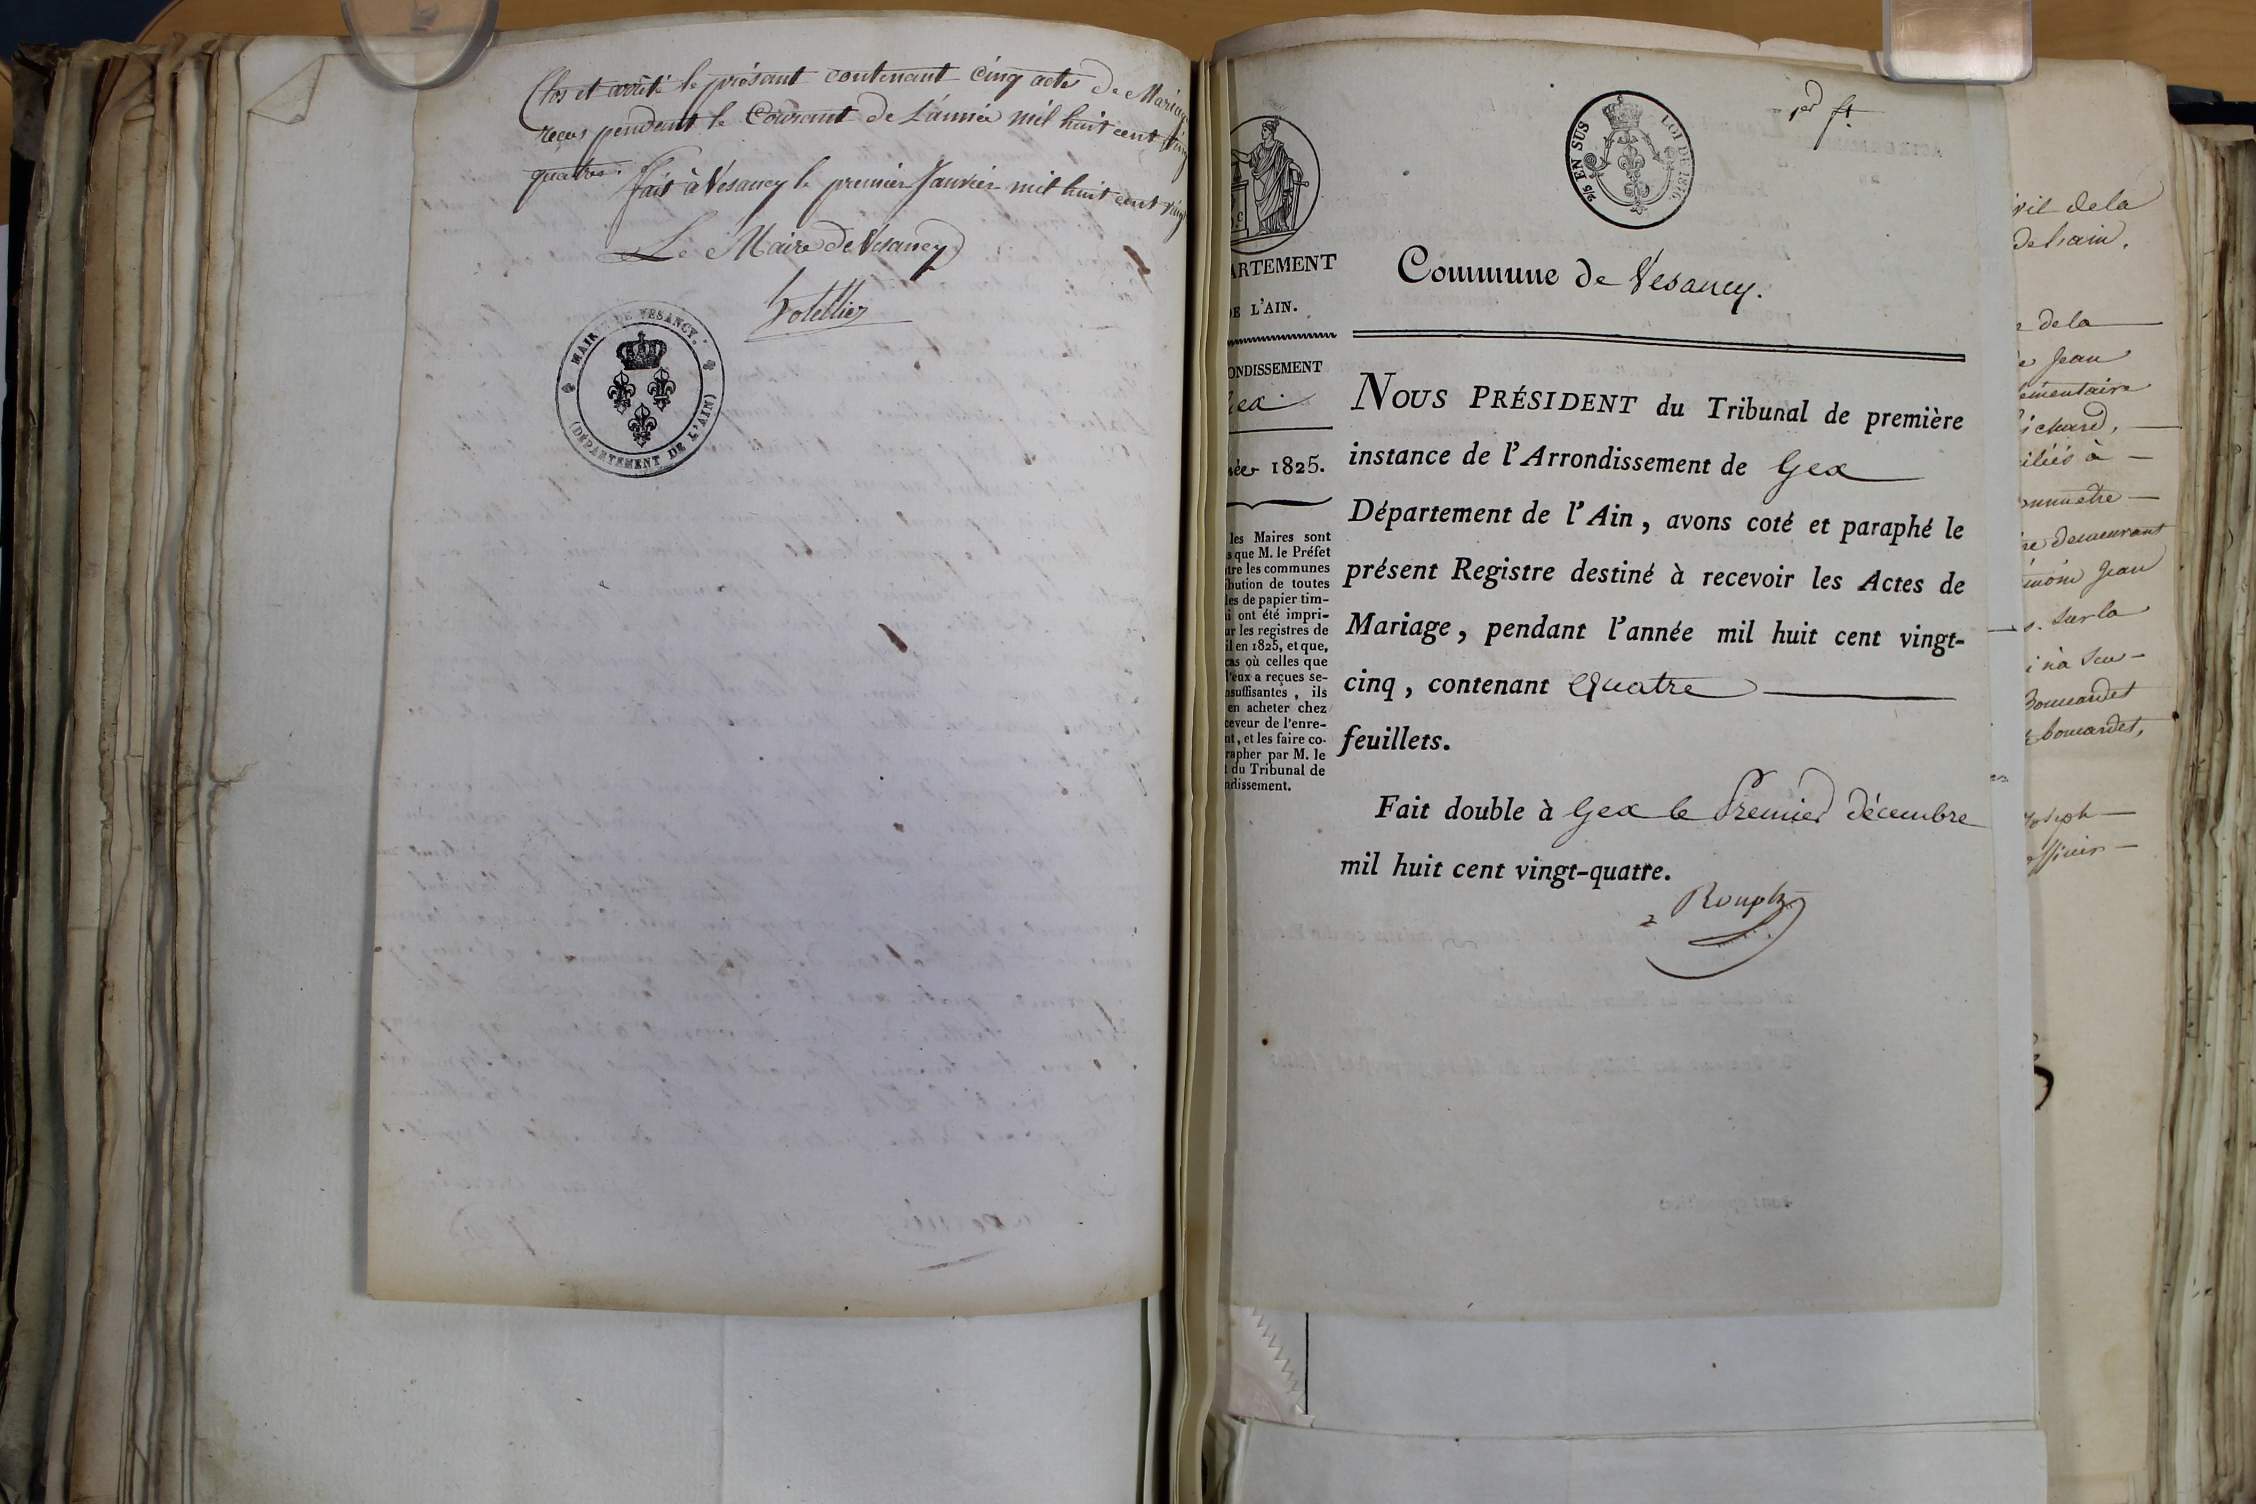 Clos et arrêté le présant contenant cinq acte de Mariag
reçus pendent le Courant de L'année mil huit cent ving
quatre.
fait à Vésancy le premier Janvier mil huit cent ving
Le Maire de Vesancy
MAIRIE DE VESANCY.
(DÉPARTEMENT DE L'AIN)
1er ft.
2/5 EN SUS
LOI DE 1816.
ARTEMENT
DE L'AIN.
ONDISSEMENT
Gex.
née 1825.
les Maires sont
s que M. le Préfet
tre les communes
ibution de toutes
les de papier tim-
i ont été impri-
ur les registres de
il en 1825, et que,
cas où celles que
d'eux a reçues se-
nsuffisantes, ils
en acheter chez
ceveur de l'enre-
nt, et les faire co-
rapher par M. le
t du Tribunal de
ndissement.
Commune de Vesancy.
NOUS PRÉSIDENT du Tribunal de première
instance de l'Arrondissement de Gex
Département de l'Ain, avons coté et paraphé le
présent Registre destiné à recevoir les Actes de
Mariage, pendant l'année mil huit cent vingt-
cinq, contenant Quatre
feuillets.
Fait double à Gex le Premier décembre
mil huit cent vingt-quatre.
vil de la
de l'ain.
de la
Jean
ementaire
ichard,
iliés à
onnuetre
re demeurant
Jean
sur la
i n'a seu
Joseph